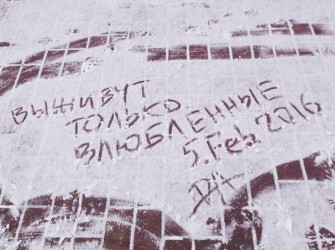 ВЫЖИВУТ
ТОЛЬКО
ВЛЮБЛЕННЫЕ
5.Feb 2016